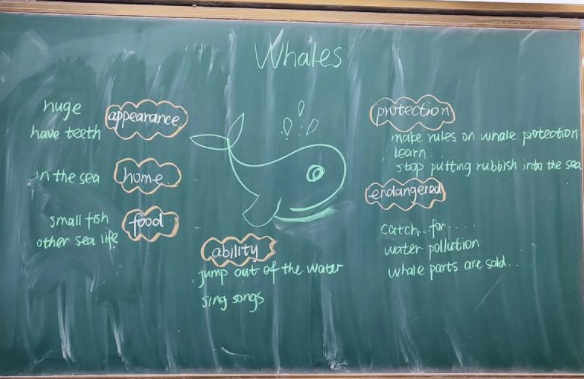 Whales
huge
have teeth
appearance
in the sea
home
small fish
other sea life
food
ability
jump out of the water
sing songs
protection
make rules on whale protection
learn...
stop putting rubbish into the sea
endangered
catch..for.....
water pollution
whale parts are sold...